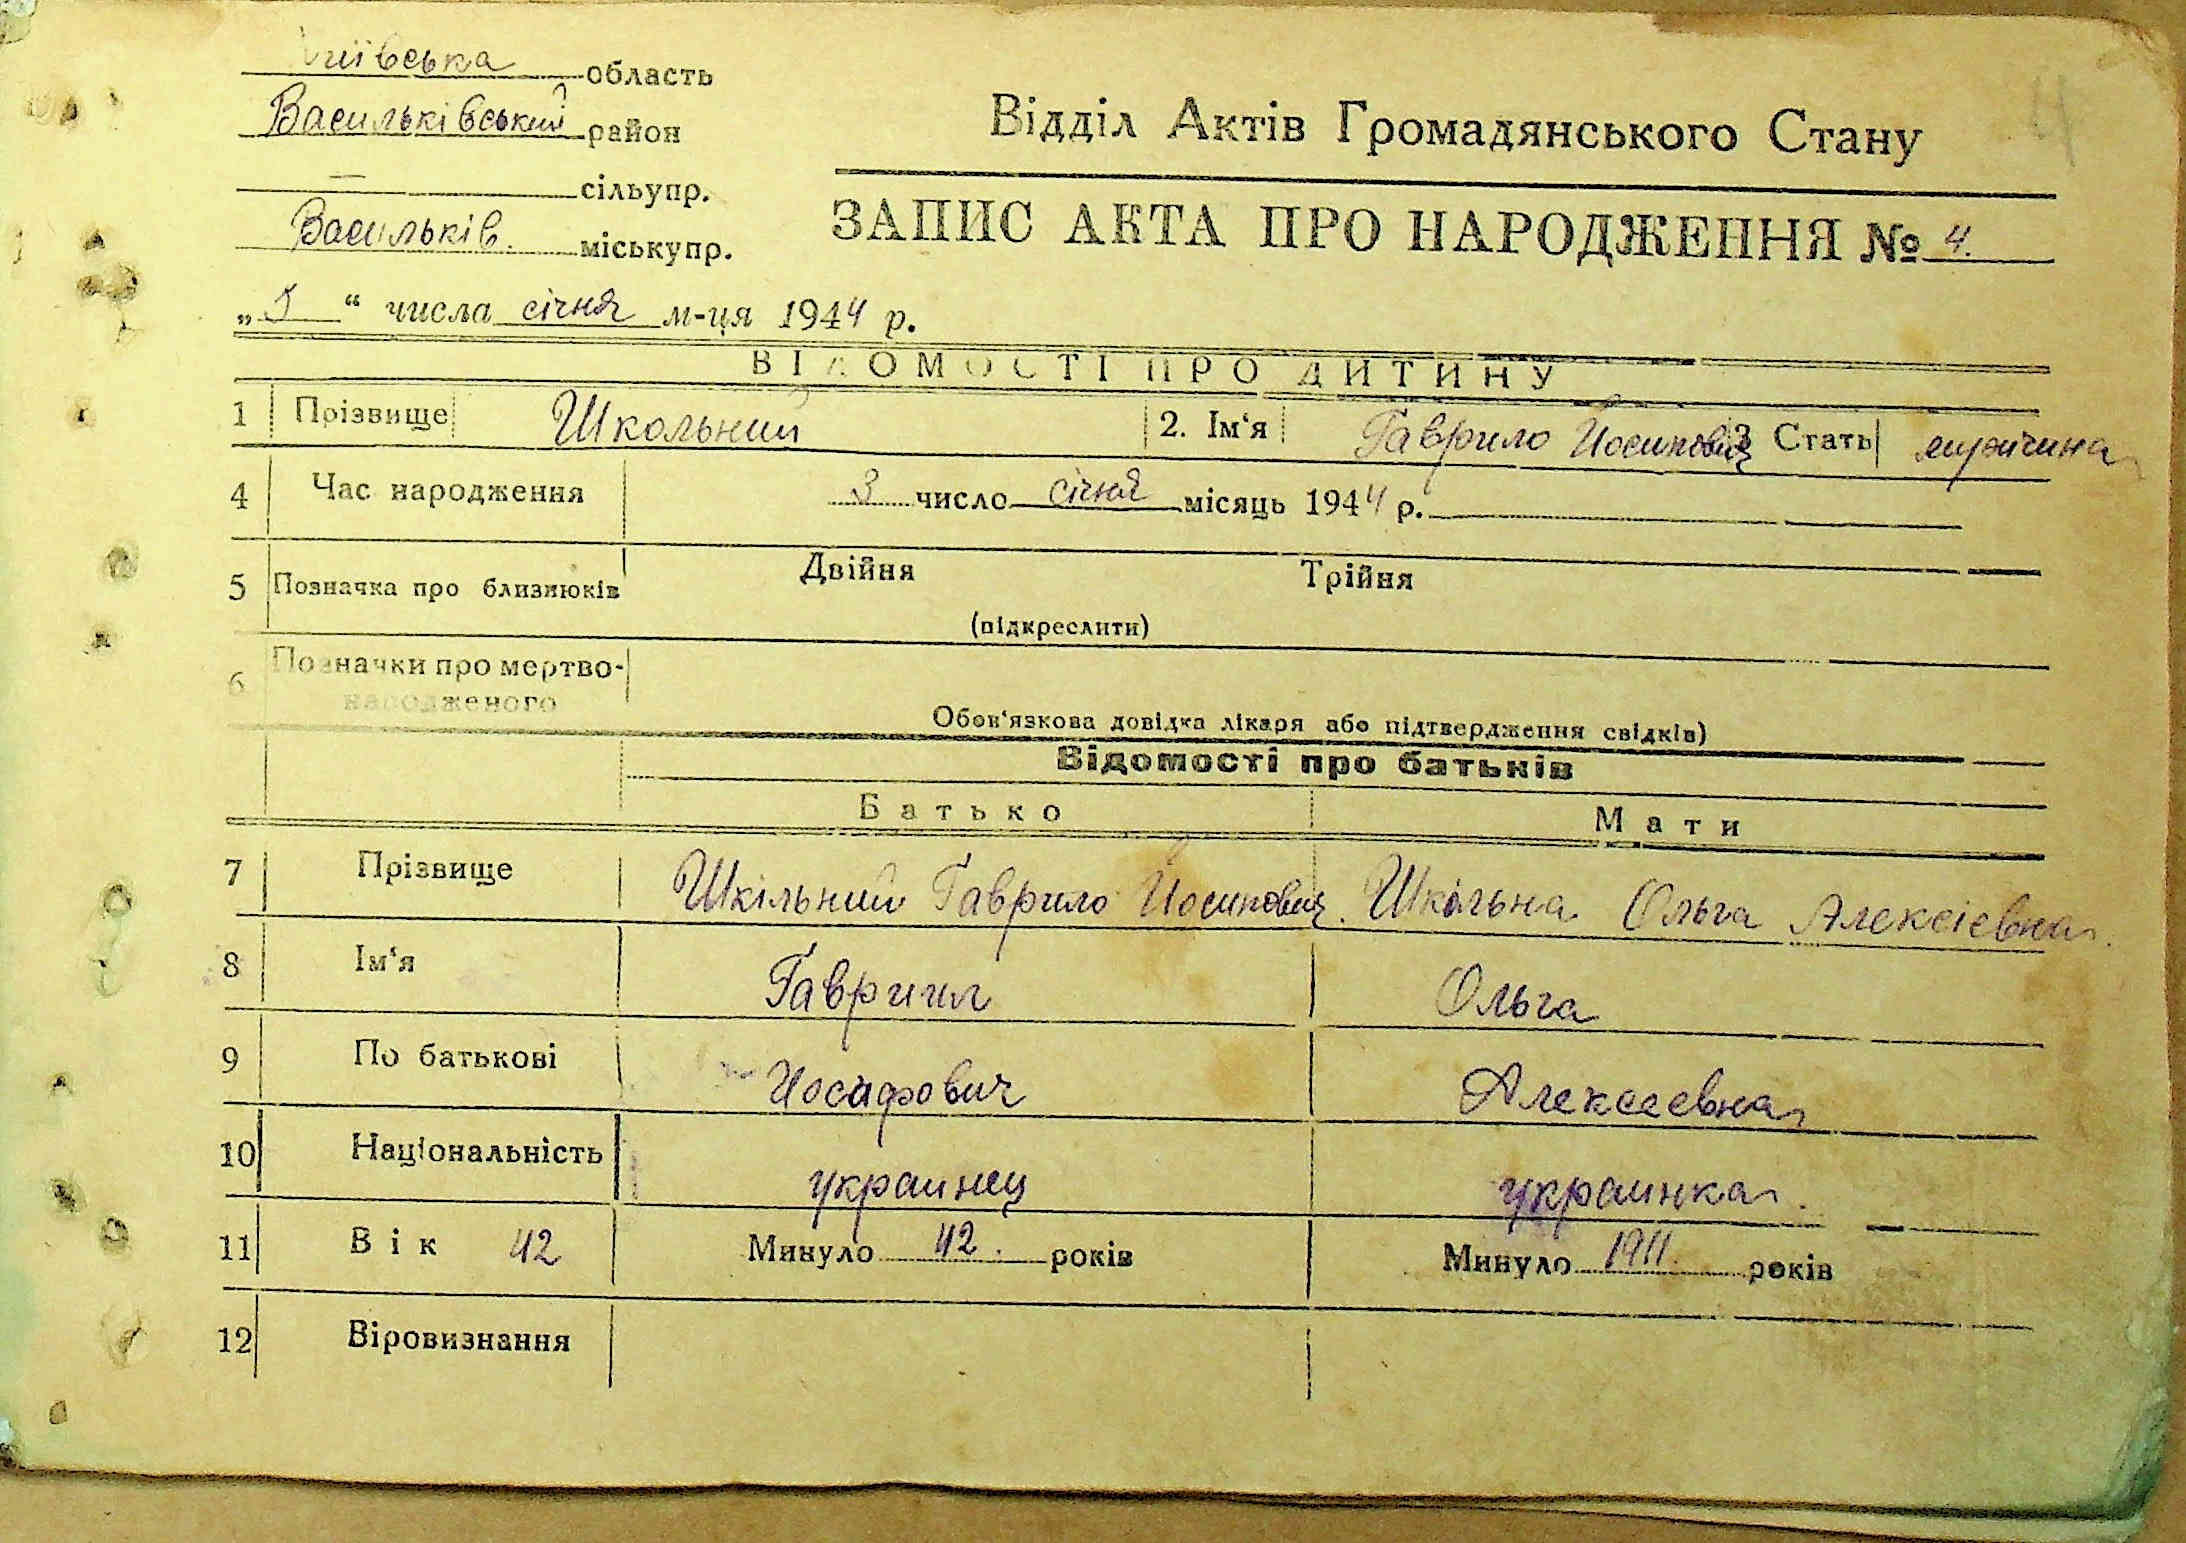 Київська область
Васильківський район
— сільупр.
Васильків. міськупр.
4
Відділ Актів Громадянського Стану
ЗАПИС АКТА ПРО НАРОДЖЕННЯ № 4.
„5“ числа січня м-ця 1944 р.
ВІДОМОСТІ ПРО ДИТИНУ
1 Прізвище Школьний 2. Ім‘я Гаврило Йосипович 3 Стать мужчина
4 Час народження 3 число січня місяць 1944 р.
5 Позначка про близнюків Двійня Трійня
(підкреслити)
6 Позначки про мертво-
народженого
Обов‘язкова довідка лікаря або підтвердження свідків)
Відомості про батьків
Батько Мати
7 Прізвище Шкільний Гаврило Йосипович. Шкільна Ольга Алексієвна.
8 Ім‘я Гавриил Ольга
9 По батькові Иосифович Алексеевна
10 Національність украинец украинка.
11 Вік 42 Минуло 42. років Минуло 1911. років
12 Віровизнання